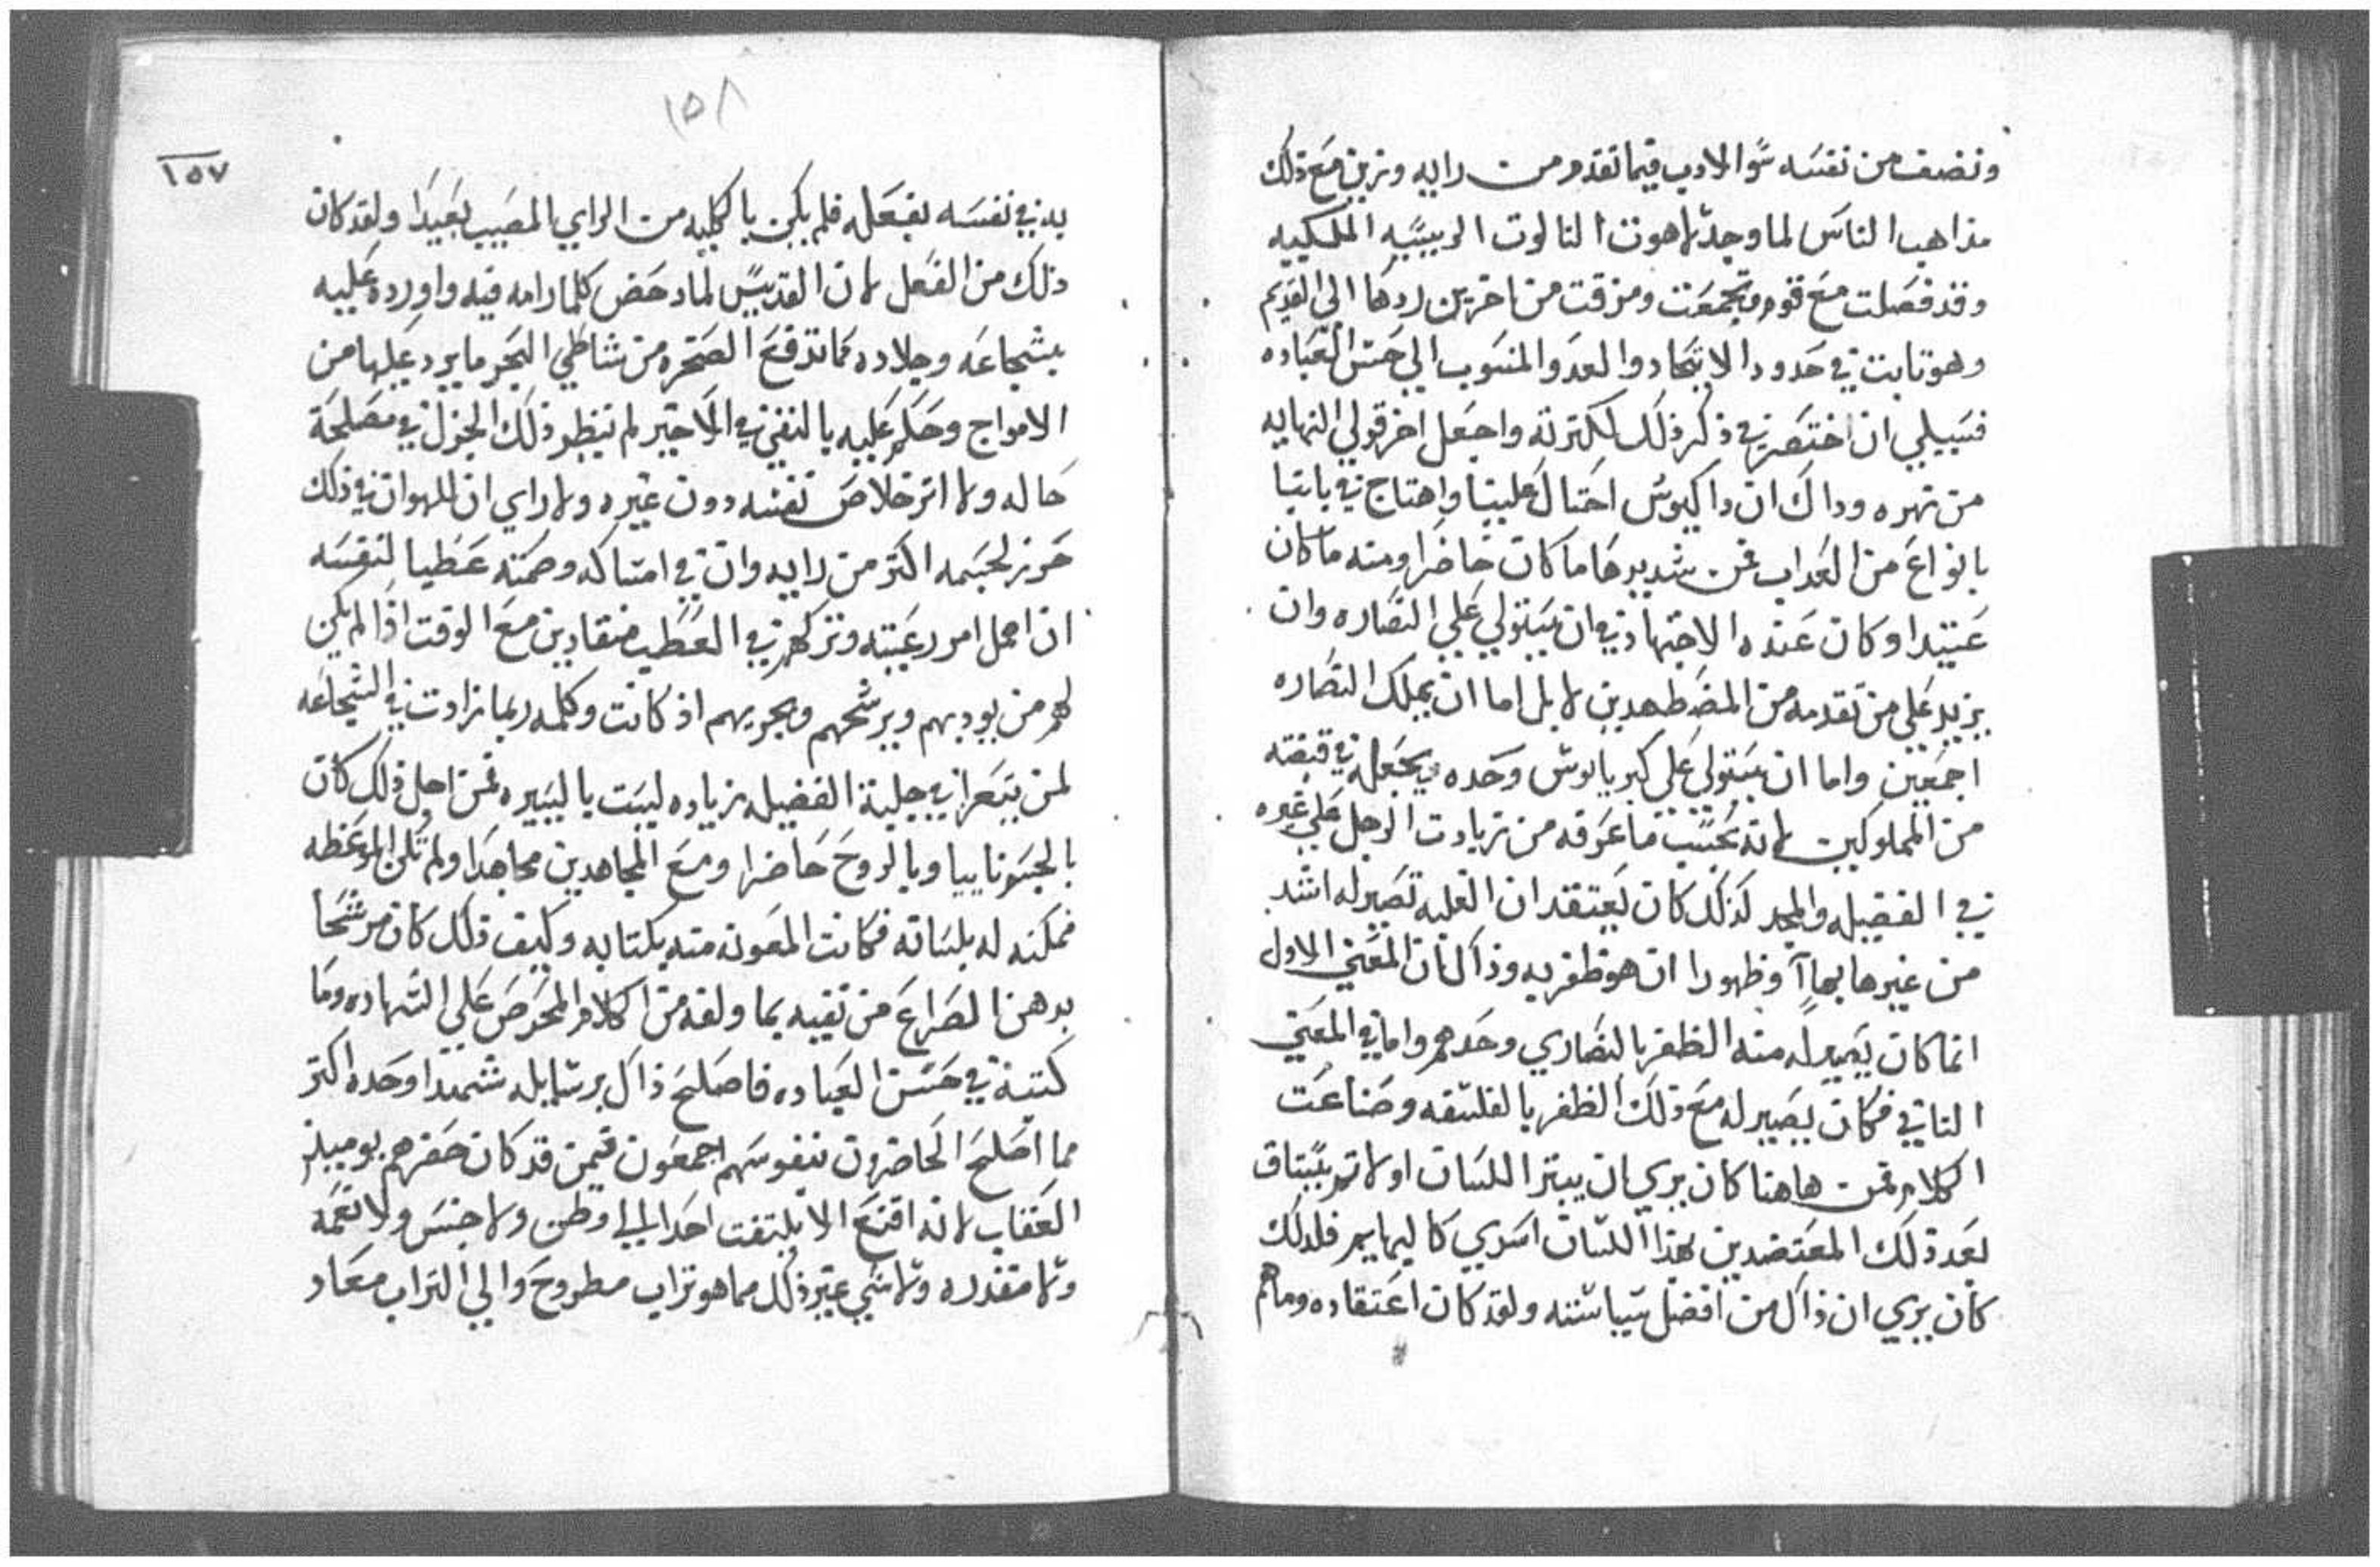 ونضف من نفسه سوا الادب فيما تقدم من رايه ونرين مع ذلك
مذاهب الناس لما وجد لاهوت التالوت الرييسيه الملكييه
وقد فصلت مع قوم وتجمعت ومزقت من اخرين ردها الى القديم
وهو تابت في حدود الاتحاد والعدو المنسوب الي حسن العباده
فسبيلي ان اختصر في ذكر ذلك لكثرته واجعل اخر قولي النهايه
من نهره وداك ان داكيوس احتال علينا واهتاج في بابنا
بانواع من العداب فمن شديدها ما كان حاضرا ومنه ما كان
عتيدا وكان عنده الاجتهاد في ان يستولي علي النصاره وان
يزيد علي من تقدمه من المضطهدين لا بل اما ان يملك النصاره
اجمعين واما ان يستولي علي كبريانوس وحده ويجعله في قبضته
من المملوكين لانه بحسب ما عرفه من زيادت الرجل علي غيره
في الفضيله والمجد كذلك كان يعتقد ان الغلبه تصير له اشد
من غيرها بهاآ وظهورا ان هو ظفر به وذاك ان المعني الاول
انما كان يصير له منه الظفر بالنصاري وحدهم واما في المعني
التاني فكان يصير له مع ذلك الظفر بالفلسفه وصناعت
الكلام فمن هاهنا كان يري ان يبتر اللسان اولا تم يستاق
بعد ذلك المعتضدين بهذا اللسان اسري كالبهايم فلدلك
كان يري ان ذاك من افضل سياسته ولقد كان اعتقاده وما هم
١٥٨
١٥٧
به في نفسه بفعله فلم يكن بالكليه من الراي المصيب بعيدا ولقد كان
ذلك من الفعل لان القديس لما دحض كلما رامه فيه واورده عليه
بشجاعه وجلاده كما تدفع الصخره من شاطي البحر ما يرد عليها من
الامواج وحكم عليه بالنفي في الاخير لم ينظر ذلك الجزل في مصلحة
حاله ولا اتر خلاص نفسه دون غيره ولا راي ان الهوان في ذلك
حرز لجسمه اكتر من رايه وان في امساكه وصمته عطبا لنفسه
ان اهمل امور رعيته وتركهم في العطب منقادين مع الوقت اذا لم يكن
لهم من يودبهم ويرشحهم ويجريهم اذ كانت وكلمه ربما زادت في الشجاعه
لمن يتعرا في حلبة الفضيله زياده ليست باليسيره فمن اجل ذلك كان
بالجسم ناييا وبالروح حاضرا ومع المجاهدين مجاهدا ولم تكن الموعظه
ممكنه له بلسانه فكانت المعونه منه بكتابه وكيف ذلك كان مرشحا
بدهن الصراع من نفيه بما ولفه من الكلام المحرص علي الشهاده وما
كتبه في حسن العباده فاصلح ذاك برسايله شهدا وحده اكتر
مما اصلح الحاضرون بنفوسهم اجمعون فيمن قد كان حضرهم يوميذ
العقاب لانه اقنع الا يلتفت احد الي اوطن ولا جنس ولا نعمه
ولا مقدره ولا شي غير ذلك مما هو تراب مطروح والي التراب معاد